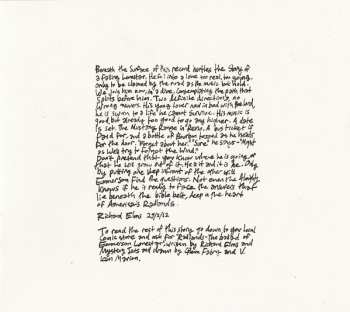 Beneath the surface of this record bustles the story of
a falling Lonestar. He fell into a love too real, too young,
only to be claimed by the road as the music took hold.
We join him now, in a dive, contemplating the path that
splits before him. Two definite directions, no
wrong answers. His young lover now in bad with the band,
he is sworn to a life he cannot survive. His music is
good but already too good to go any higher. A date
is set. The Mustang Range in Reno. A bus ticket is
paid for, and a bottle of Bourbon tapped as he heads
for the door. "Forget about her." "Sure" he says - "Might
as well try to forget the wind."
Don't pretend that you know where he is going, or
that he will grow out of it. Hear it and it
By putting one step in front of the other will
Emmerson find the questions. Not even the Almighty
knows if he is ready to face the answers that
lie beneath the bible belt, deep in the heart
of America's Badlands.
Richard Elms 25/2/12
To read the rest of this story go down to your local
comic store and ask for 'Radlands - The ballad of
Emmerson Lonestar', written by Richard Elms and
Mystery Jets and drawn by Glenn Fabry and V.
Iain Marion.